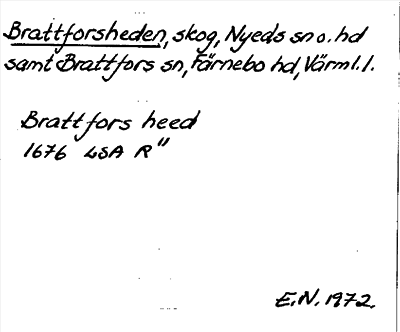 Brattforsheden, skog, Nyeds sn o. hd
samt Brattfors sn, Färnebo hd, Värml. l.
Brattfors heed
1676 LSA R"
E.N. 1972.